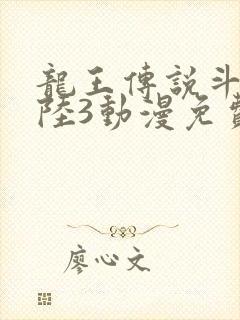 龍王傳說斗
陸3動漫免費
廖心文